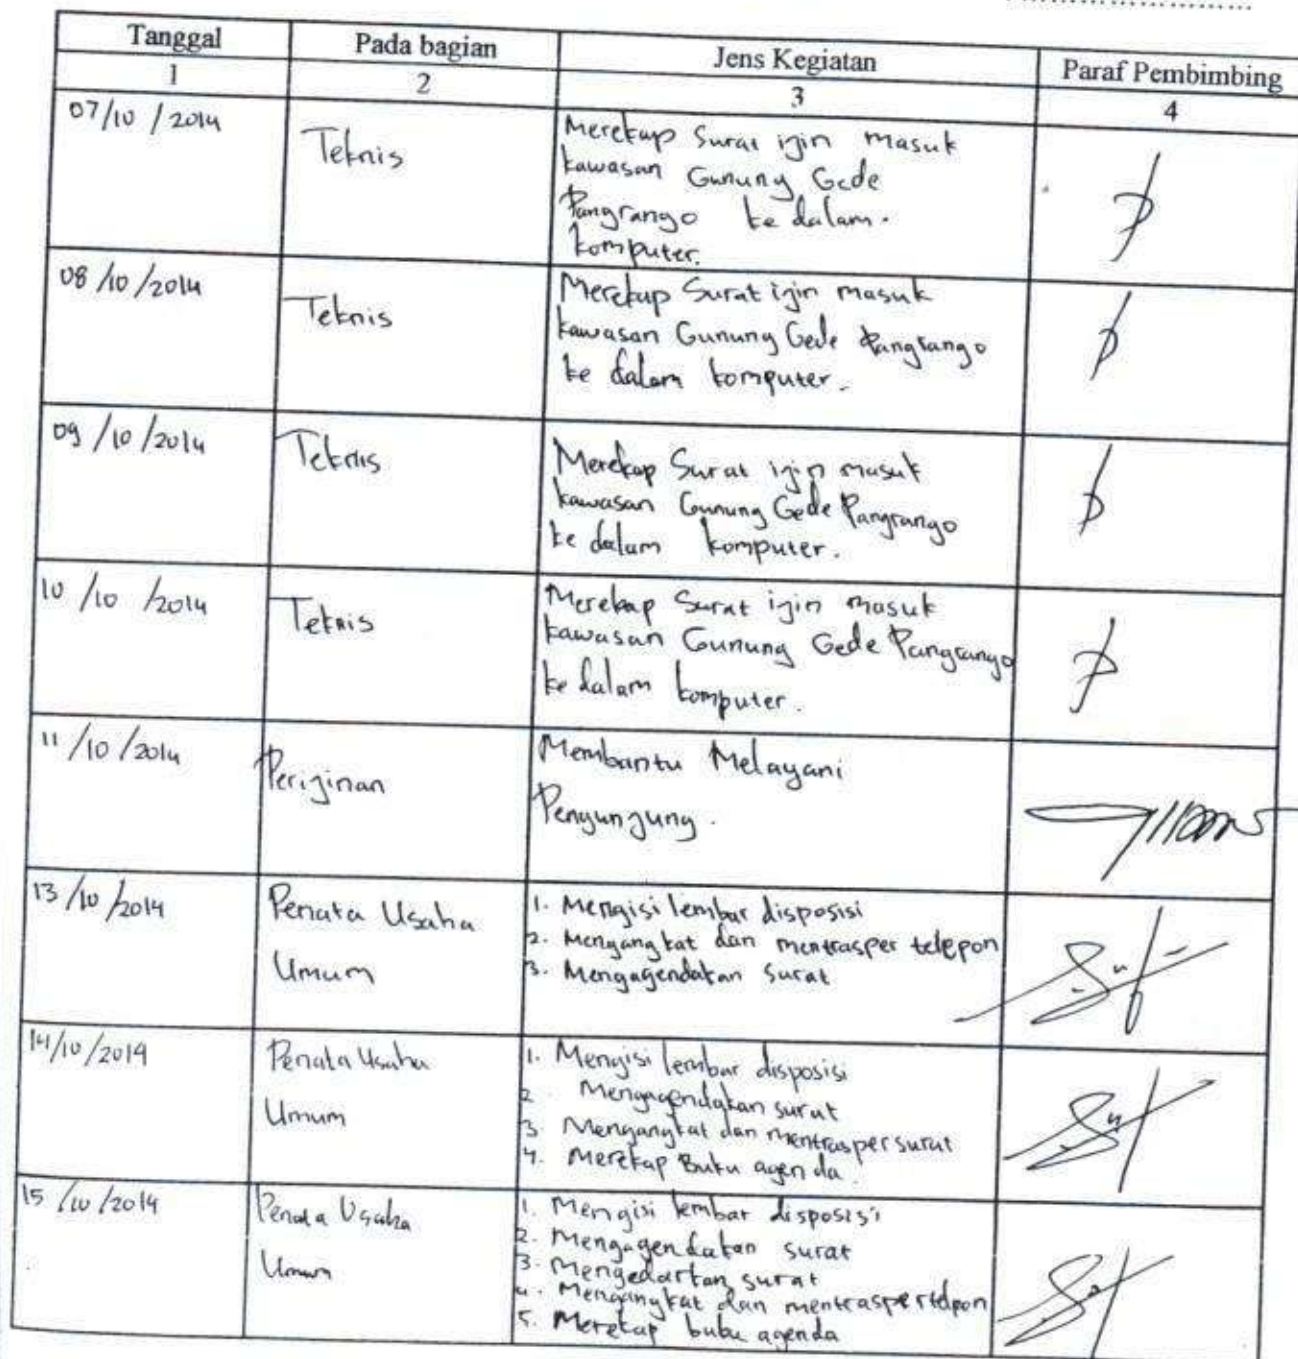 Tanggal Pada bagian Jens Kegiatan Paraf Pembimbing
1 2 3 4
07/10/2014 Teknis Merekap Surat izin masuk
kawasan Gunung Gede
Pangrango ke dalam.
komputer.
08/10/2014 Teknis Merekap Surat izin masuk
kawasan Gunung Gede Pangrango
ke dalam komputer.
09/10/2014 Teknis Merekap Surat izin masuk
kawasan Gunung Gede Pangrango
ke dalam komputer.
10/10/2014 Teknis Merekap Surat izin masuk
kawasan Gunung Gede Pangrango
ke dalam komputer.
11/10/2014 Perizinan Membantu Melayani
Pengunjung.
13/10/2014 Penata Usaha 1. Mengisi lembar disposisi
2. Mengangkat dan mentrasper telepon
Umum 3. Mengagendakan Surat
14/10/2014 Penata Usaha 1. Mengisi lembar disposisi
2. Mengagendakan surat
Umum 3. Mengangkat dan mentrasper surat
4. Merekap Buku agenda.
15/10/2014 Penata Usaha 1. Mengisi lembar disposisi
2. Mengagendakan surat
Umum 3. Mengedarkan surat
4. Mengangkat dan mentrasper telpon
5. Merekap buku agenda